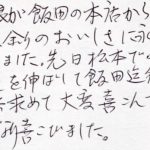 が飯田の本店から
余りのおいしさに
ました。先日松本で
を伸ばして飯田迄
求めて大変喜こんで
喜こびました。